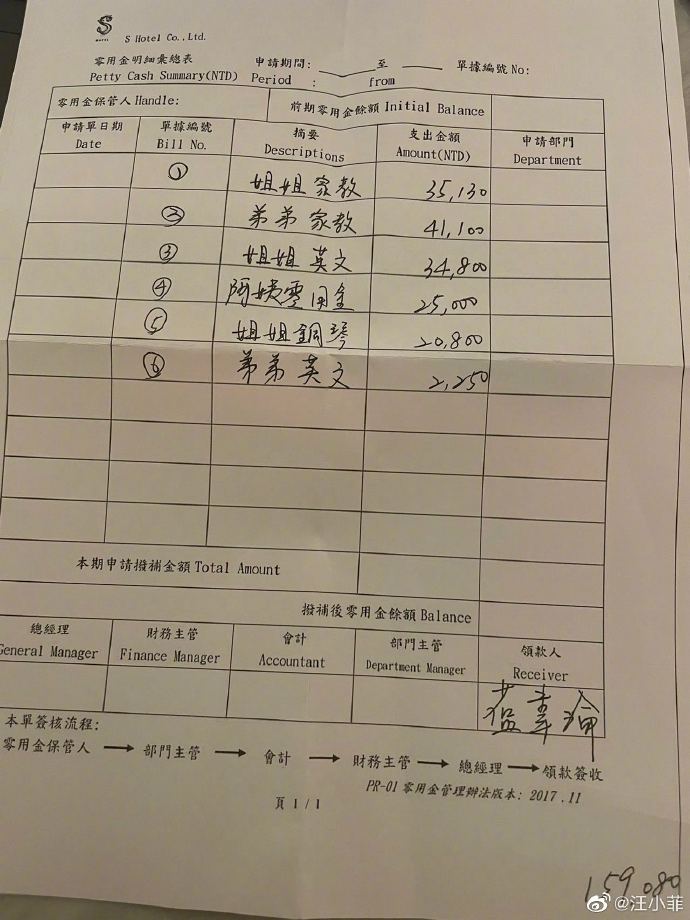 S
HOTEL
S Hotel Co.,Ltd.
零用金明細彙總表 申請期間: 至 單據編號 No:
Petty Cash Summary(NTD) Period : from
零用金保管人 Handle: 前期零用金餘額 Initial Balance
申請單日期 單據編號 摘要 支出金額 申請部門
Date Bill No. Descriptions Amount(NTD) Department
① 姐姐家教 35,130
② 弟弟家教 41,100
③ 姐姐英文 34,800
④ 阿姨零用金 25,000
⑤ 姐姐鋼琴 20,800
⑥ 弟弟英文 2,250
本期申請撥補金額 Total Amount
撥補後零用金餘額 Balance
總經理 財務主管 會計 部門主管 領款人
General Manager Finance Manager Accountant Department Manager Receiver
本單簽核流程:
零用金保管人 → 部門主管 → 會計 → 財務主管 → 總經理 → 領款簽收
PR-01 零用金管理辦法版本: 2017.11
頁 1 / 1
159,080
@汪小菲